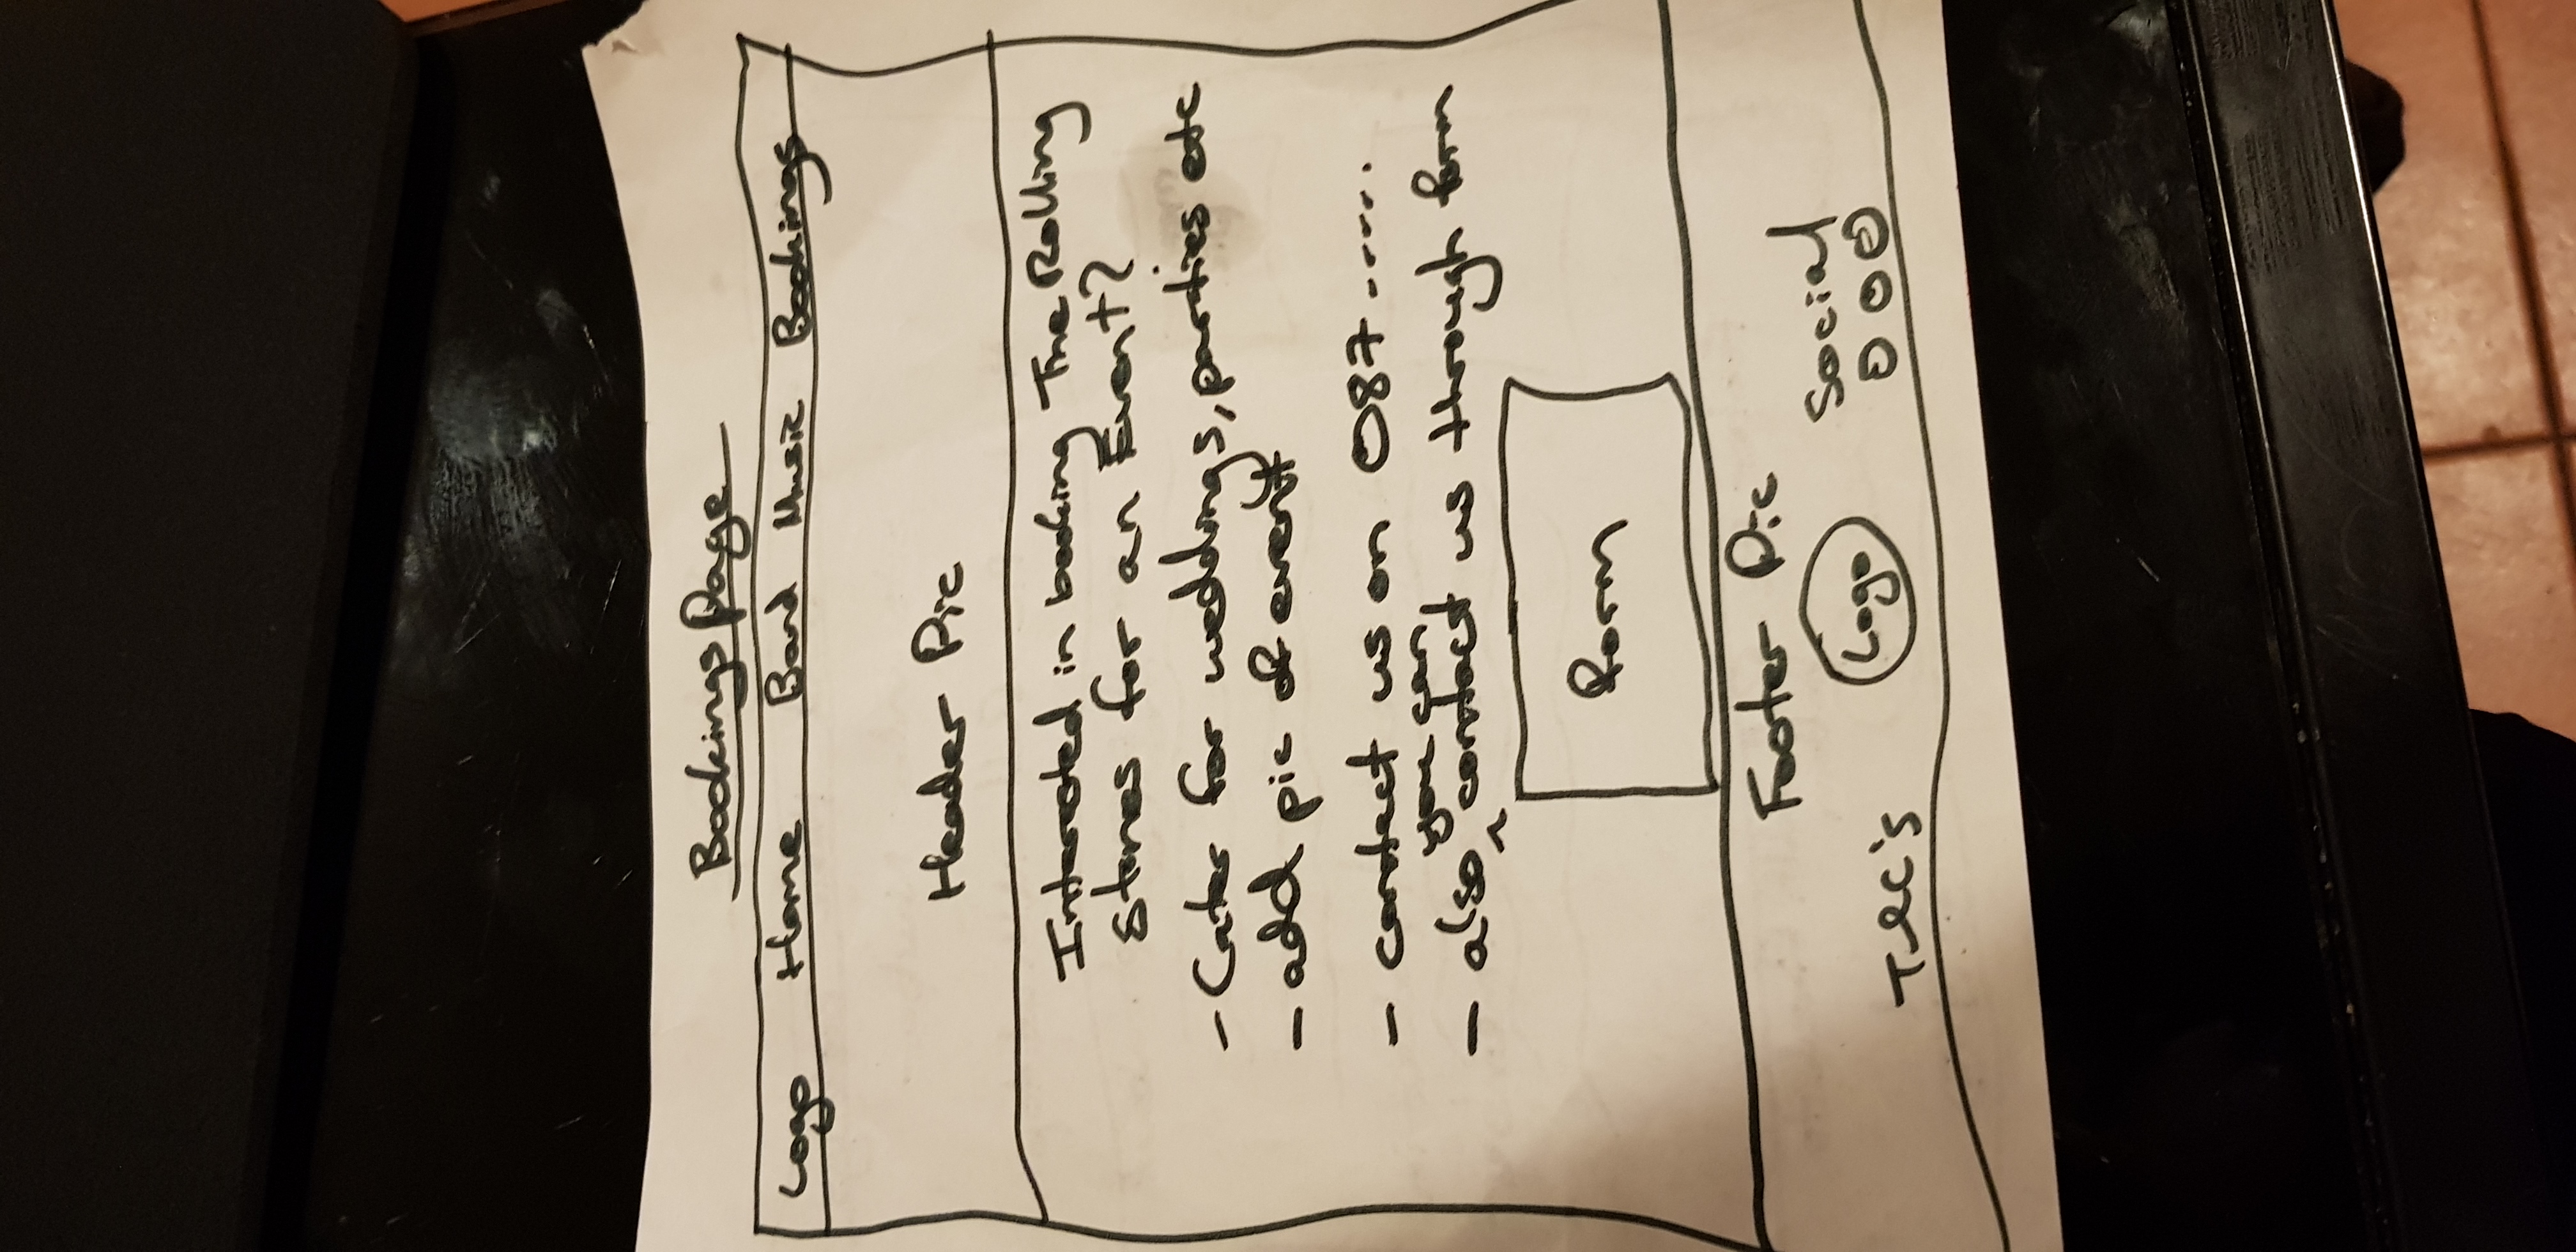 Bookings Page
Logo Home Band Music Bookings
Header Pic
Interested in booking The Rolling
Stones for an Event?
- Cater for weddings, parties etc
- add pic of event
- contact us on 087......
you can
- also ^ contact us through form
Form
Footer Pic
Social
Logo
T&C's